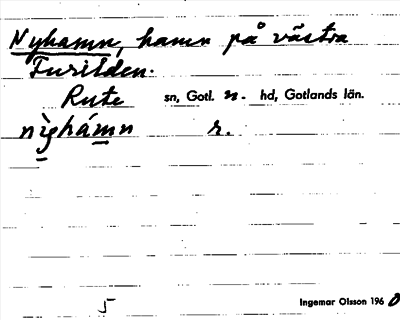 Nyhamn, hamn på västra
Furilden.
Rute sn, Gotl. n. hd, Gotlands län.
nỳghámn r.
5 Ingemar Olsson 1960